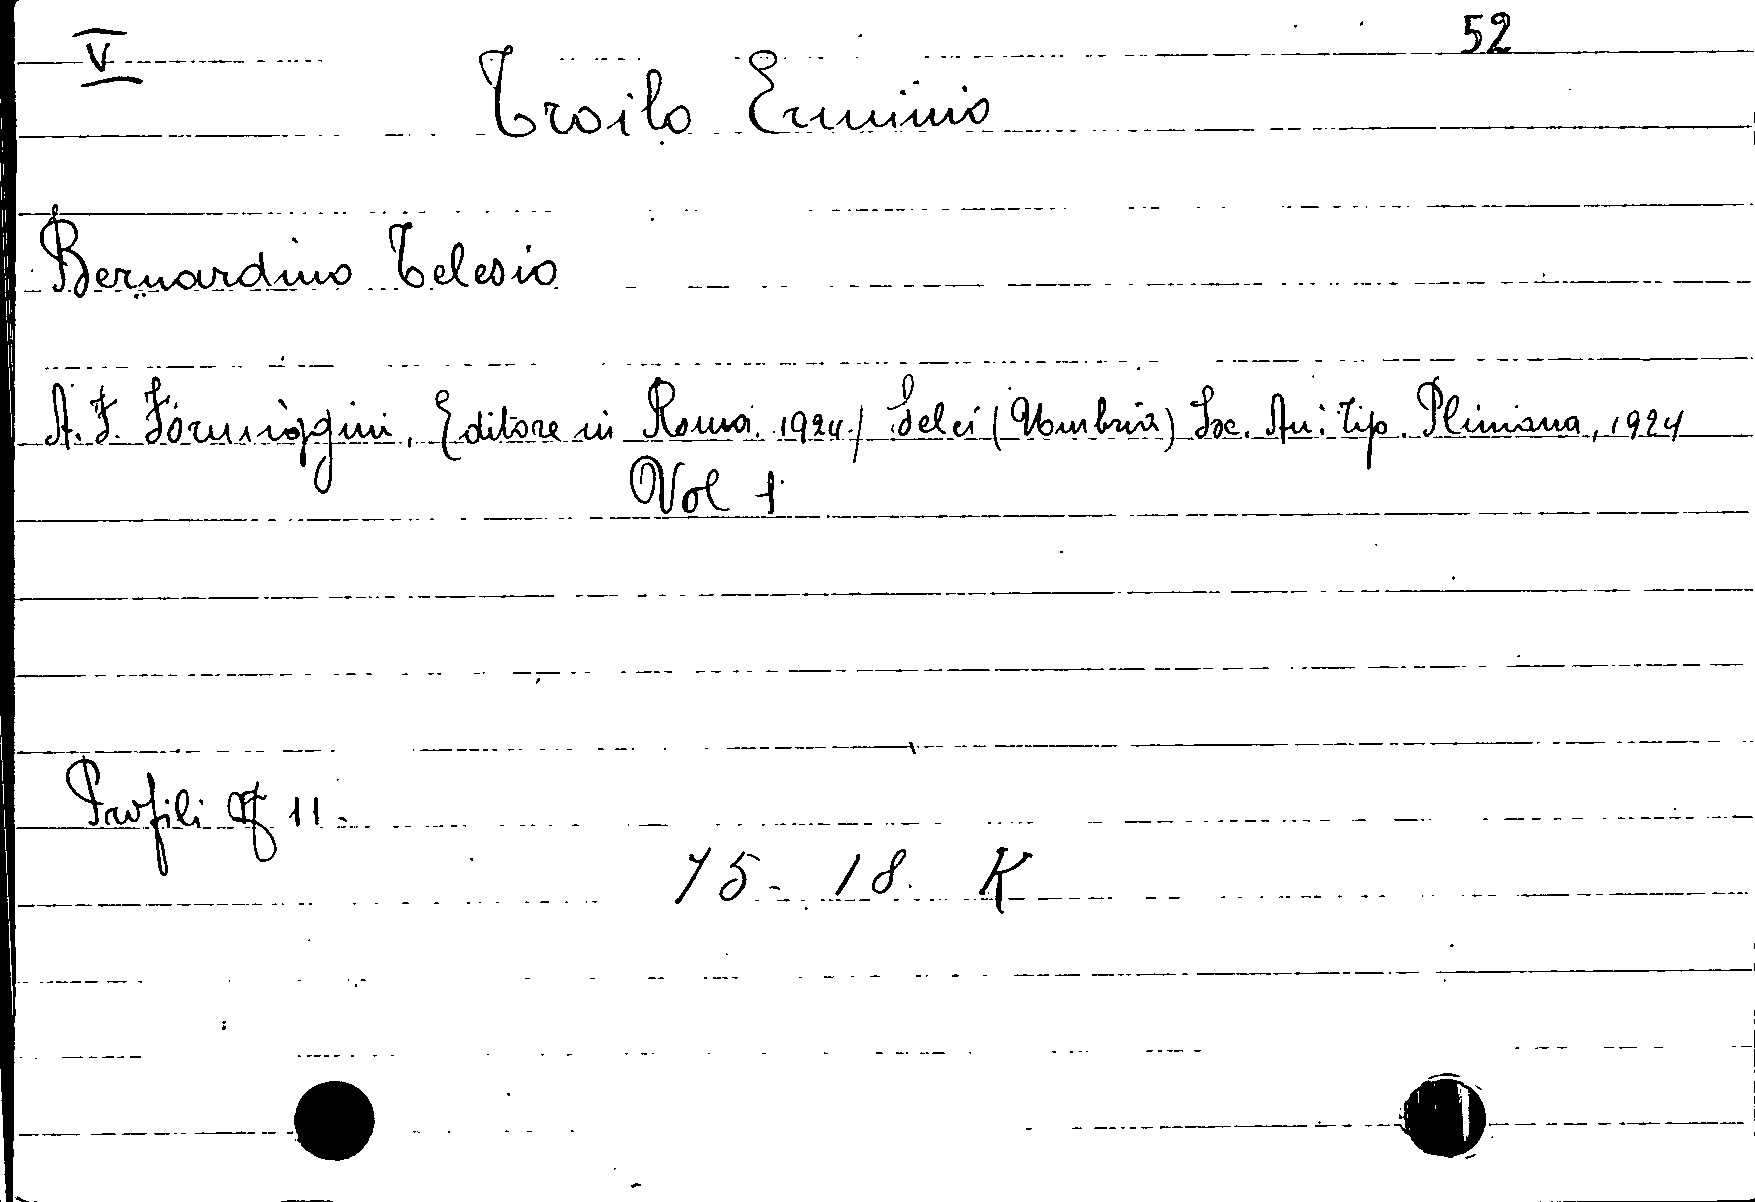 V 52
Troilo Erminio
Bernardino Telesio
A. F. Formiggini, Editore in Roma. 1924./ Selci (Umbria) Soc. An. Tip. Pliniana, 1924
Vol 1
Profili 11.
15-18. K